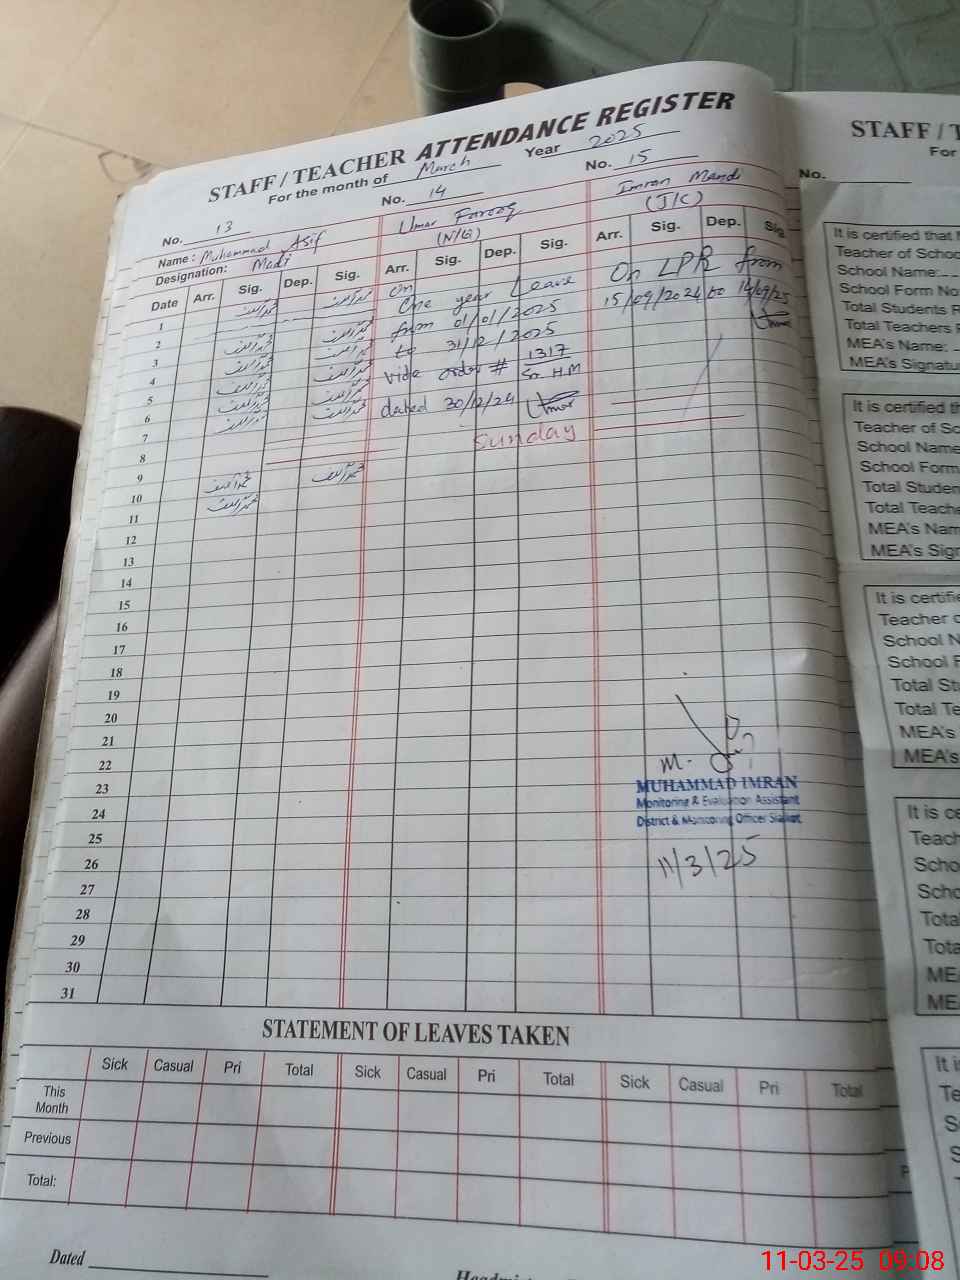 STAFF / TEACHER ATTENDANCE REGISTER
For the month of March Year 2025
No. 13 No. 14 No. 15
Name : Muhammad Asif Umar Farooq Imran Mandi
Designation: Madi (N/Q) (J/C)
Date Arr. Sig. Dep. Sig. Arr. Sig. Dep. Sig. Arr. Sig. Dep. Sig.
1 محمد آصف محمد آصف On One year Leave On LPR from
2 from 01/01/2025 15/09/2024 to 14/09/25
3 محمد آصف محمد آصف to 31/12/2025 Umar
4 محمد آصف محمد آصف vide order # 1317
5 محمد آصف محمد آصف Sr. HM
6 محمد آصف محمد آصف dated 30/12/24 Umar
7 محمد آصف محمد آصف
8 Sunday
9
10 محمد آصف محمد آصف
11 محمد آصف
12
13
14
15
16
17
18
19
20
21
22
23
24
25
26
27
28
29
30
31
M.
MUHAMMAD IMRAN
Monitoring & Evaluation Assistant
District & Monitoring Officer Sialkot
11/3/25
STATEMENT OF LEAVES TAKEN
Sick Casual Pri Total Sick Casual Pri Total Sick Casual Pri Total
This Month
Previous
Total:
Dated
STAFF / T
For
No.
It is certified that
Teacher of School
School Name:
School Form No
Total Students
Total Teachers
MEA's Name:
MEA's Signatu
It is certified th
Teacher of Sc
School Name
School Form
Total Studen
Total Teache
MEA's Nam
MEA's Sign
It is certifie
Teacher o
School N
School F
Total Stu
Total Te
MEA's
MEA's
It is ce
Teach
Scho
Scho
Total
Tota
MEA
MEA
It i
Te
S
S
11-03-25 09:08